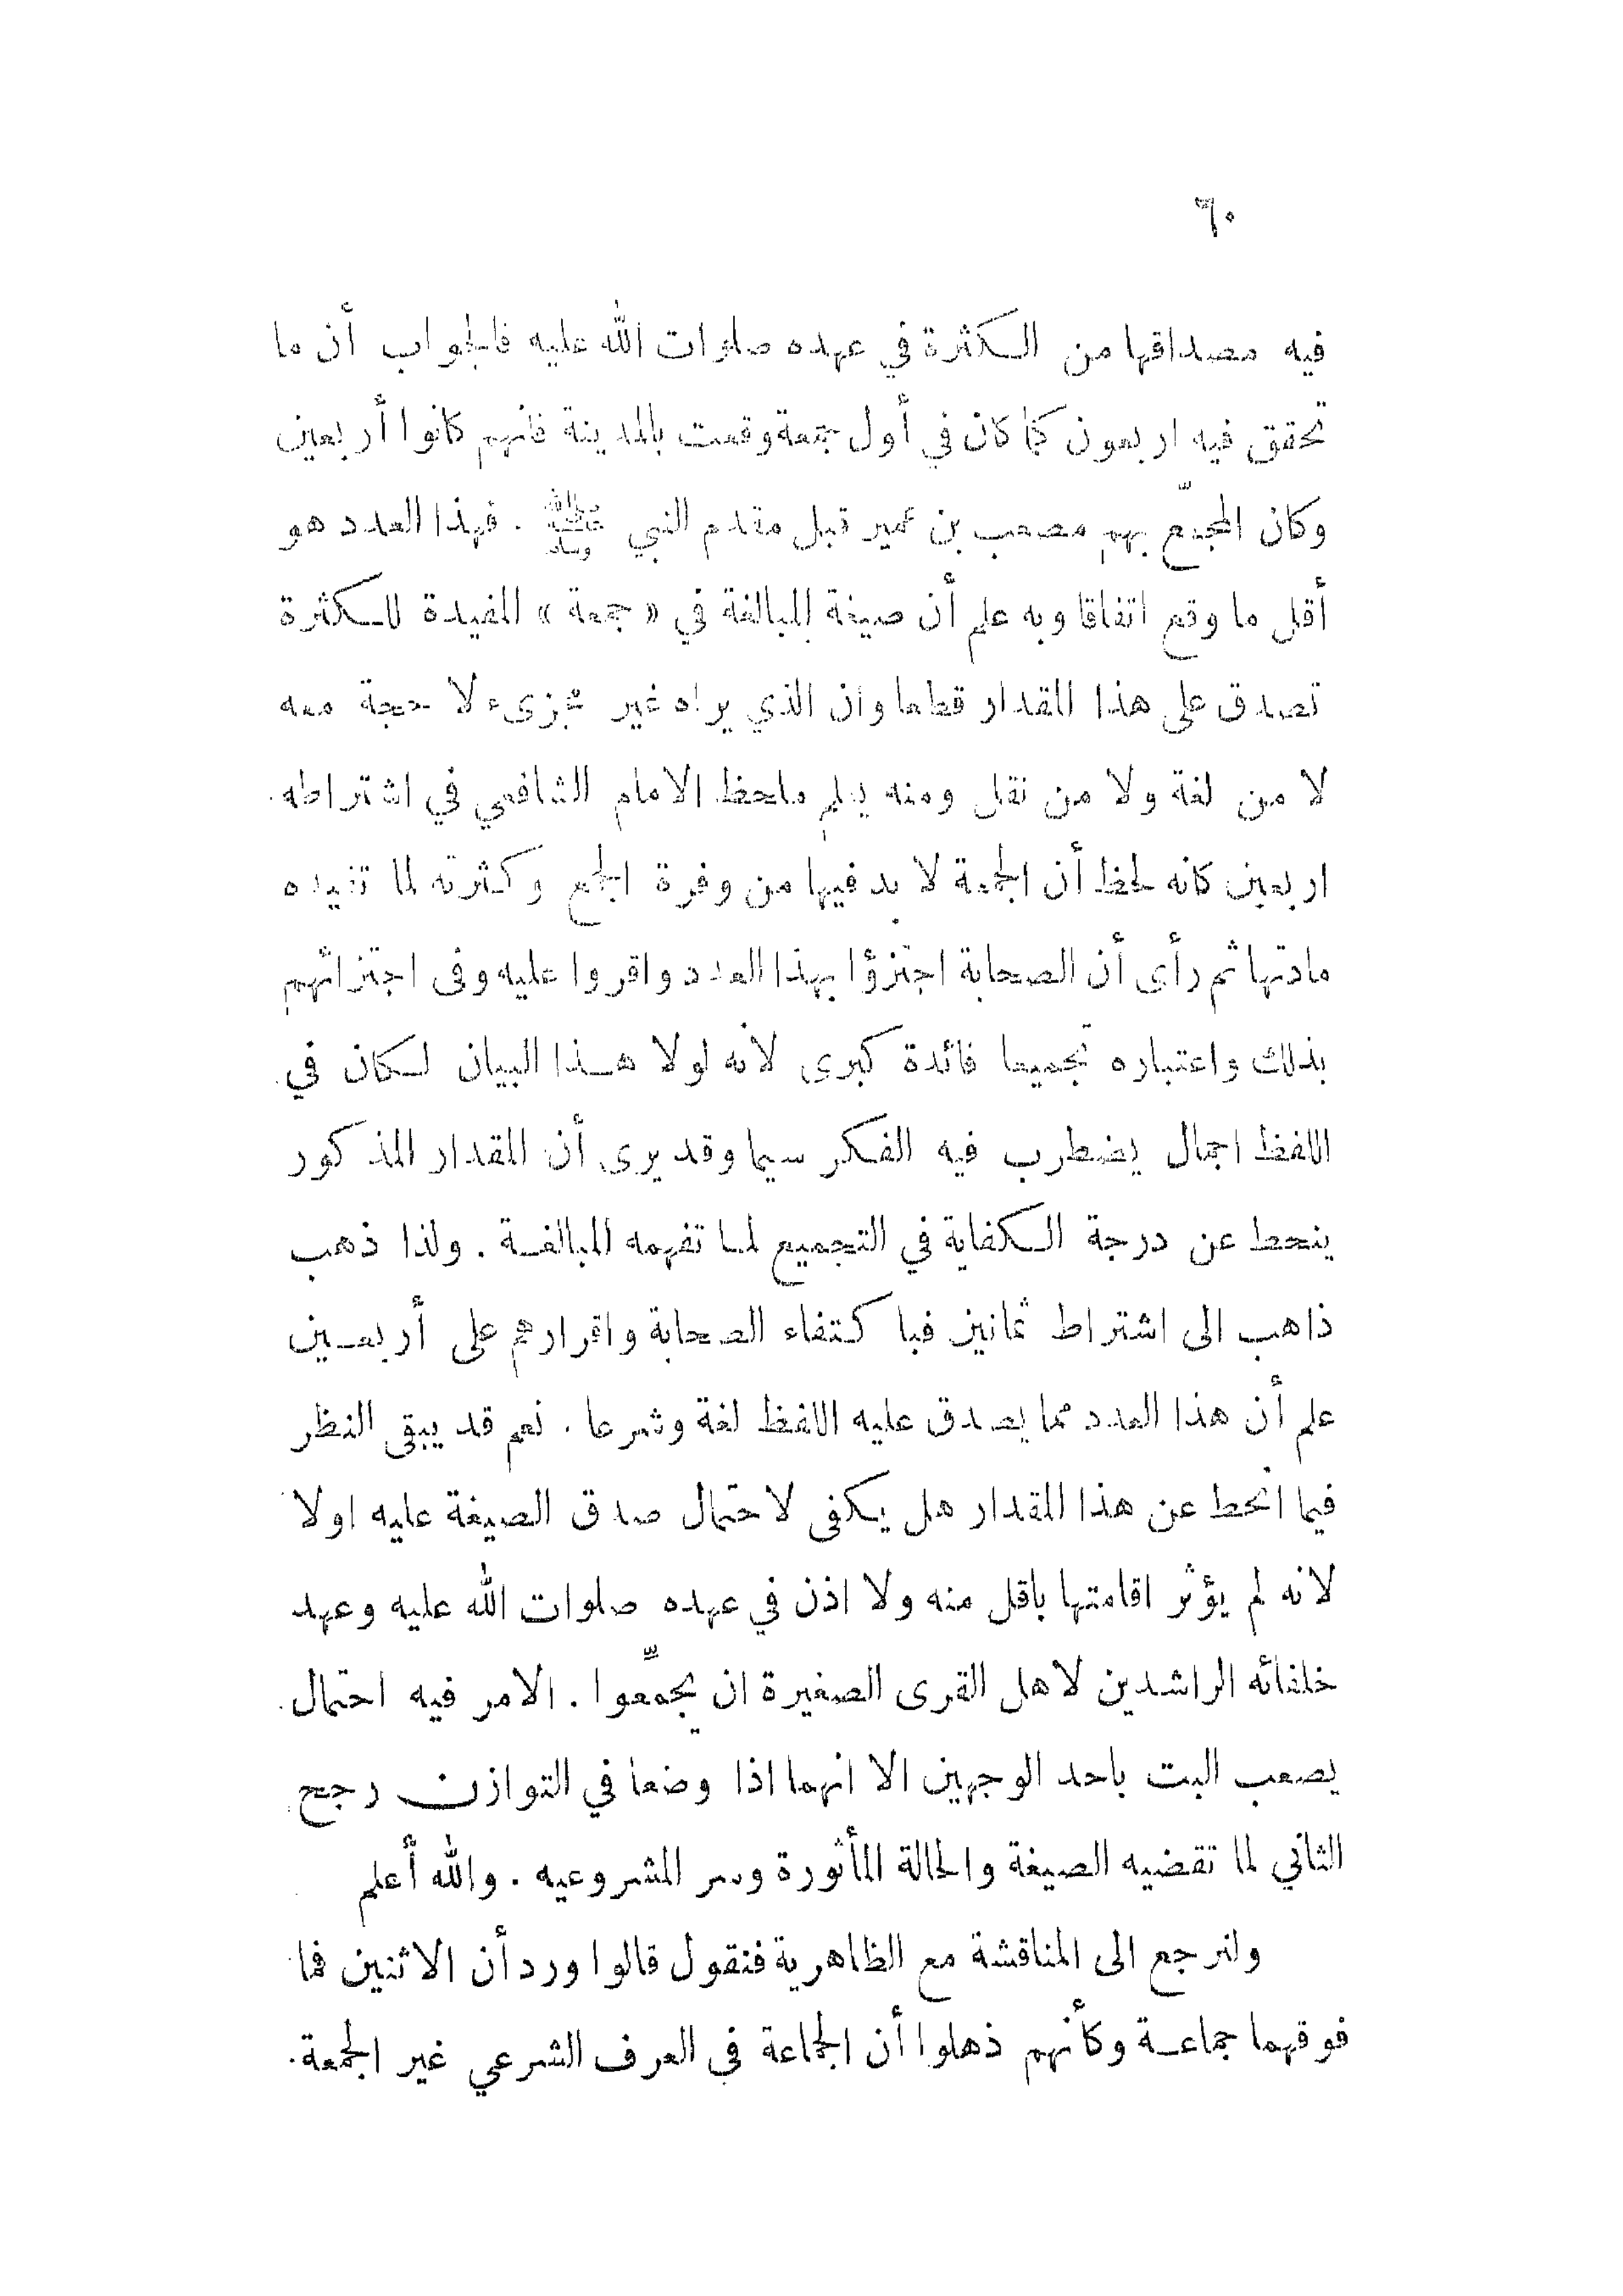 ٦٠
فيه مصداقها من الكثرة في عهده صلوات الله عليه فالجواب أن ما
تحقق فيه اربعون كما كان في أول جمعة وقعت بالمدينة فانهم كانوا أربعين
وكان المجمّع بهم مصعب بن عمير قبل مقدم النبي ﷺ . فهذا العدد هو
أقل ما وقع اتفاقا وبه علم أن صيغة المبالغة في «جمعة» المفيدة للكثرة
تصدق على هذا المقدار قطعا وان الذي يراه غير مجزىء لا حجة معه
لا من لغة ولا من نقل ومنه يعلم ملحظ الامام الشافعي في اشتراطه
اربعين كانه لحظ أن الجمعة لا بد فيها من وفرة الجمع وكثرته لما تفيده
مادتها ثم رأى أن الصحابة اجتزؤا بهذا العدد واقروا عليه وفى اجتزائهم
بذلك واعتباره تجميعا فائدة كبرى لانه لولا هذا البيان لكان في
اللفظ اجمال يضطرب فيه الفكر سيما وقد يرى أن المقدار المذكور
ينحط عن درجة الكفاية في التجميع لما تفهمه المبالغة . ولذا ذهب
ذاهب الى اشتراط ثمانين فبا كتفاء الصحابة واقرارهم على أربعين
علم أن هذا العدد مما يصدق عليه اللفظ لغة وشرعا . نعم قد يبقى النظر
فيما انحط عن هذا المقدار هل يكفى لاحتمال صدق الصيغة عليه اولا
لانه لم يؤثر اقامتها باقل منه ولا اذن في عهده صلوات الله عليه وعهد
خلفائه الراشدين لاهل القرى الصغيرة ان يجمِّعوا . الامر فيه احتمال
يصعب البت باحد الوجهين الا انهما اذا وضعا في التوازن رجح
الثاني لما تقضيه الصيغة والحالة المأثورة وسر المشروعيه . والله أعلم
ولنرجع الى المناقشة مع الظاهرية فنقول قالوا ورد أن الاثنين فما
فوقهما جماعة وكأنهم ذهلوا أن الجماعة في العرف الشرعي غير الجمعة.